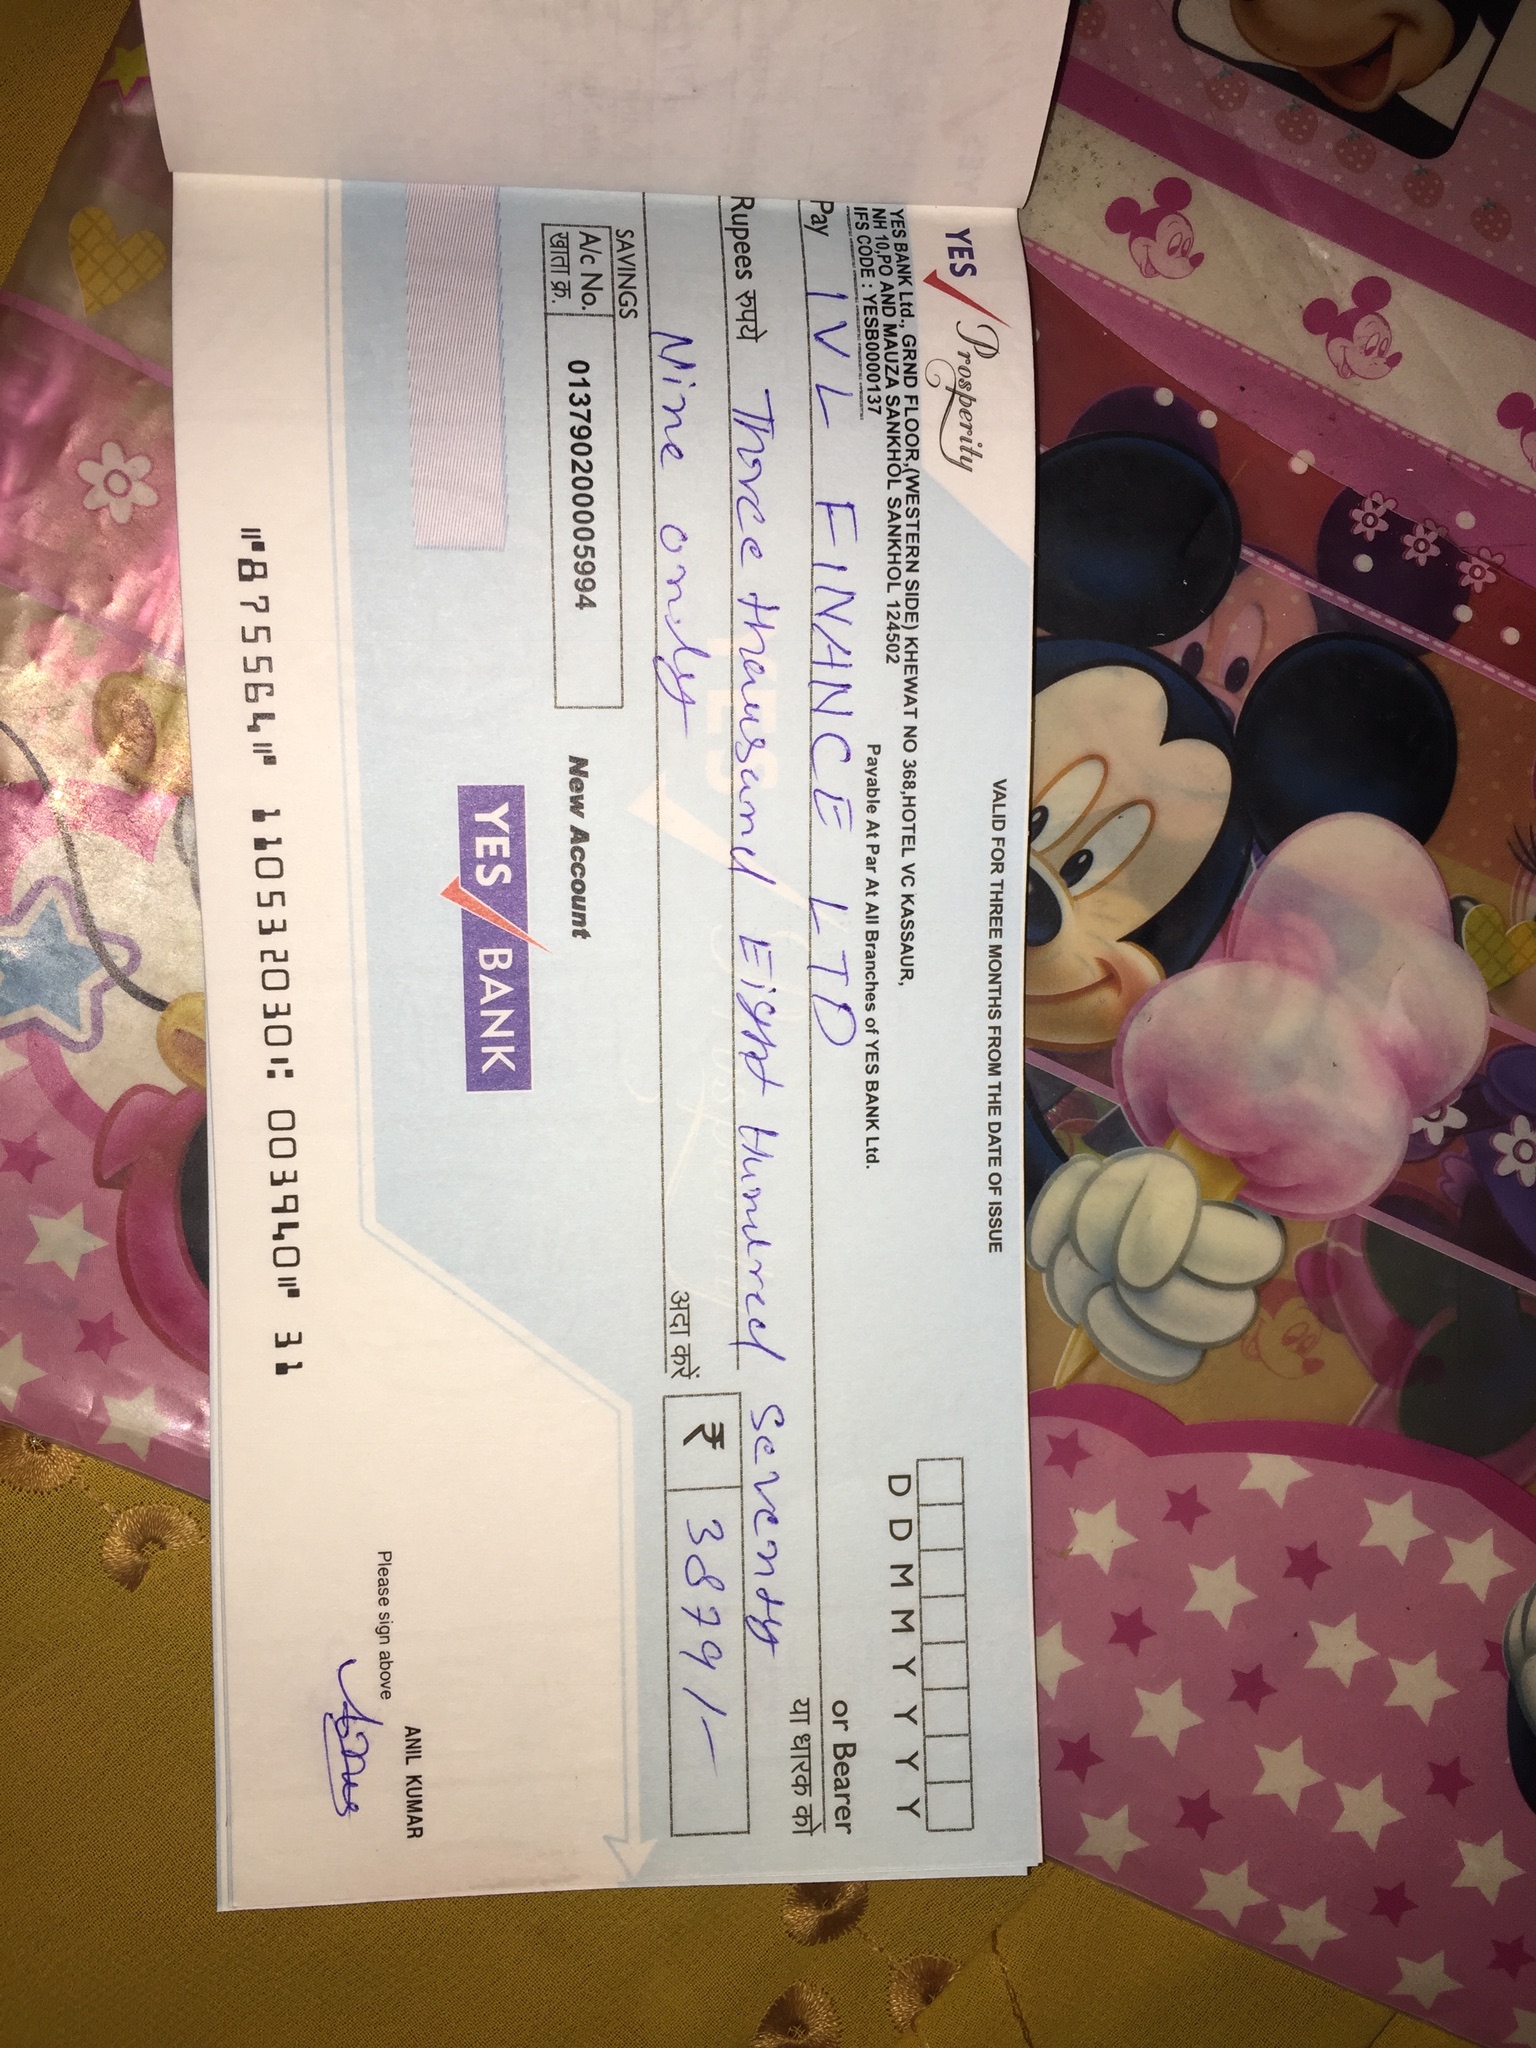 YES Prosperity
VALID FOR THREE MONTHS FROM THE DATE OF ISSUE
YES BANK Ltd., GRND FLOOR,(WESTERN SIDE) KHEWAT NO 368,HOTEL VC KASSAUR,
NH 10,PO AND MAUZA SANKHOL SANKHOL 124502
IFS CODE : YESB0000137
Payable At Par At All Branches of YES BANK Ltd.
D D M M Y Y Y Y
Pay IVL FINANCE LTD or Bearer
या धारक को
Rupees रुपये Thorce thousand Eight Hundred Seventy
Nine only अदा करें ₹ 3879/-
SAVINGS
A/c No. 013790200005994
खाता क्र.
New Account
YES BANK
ANIL KUMAR
Please sign above
⑈875564⑈ 110532030⑆ 003940⑈ 31